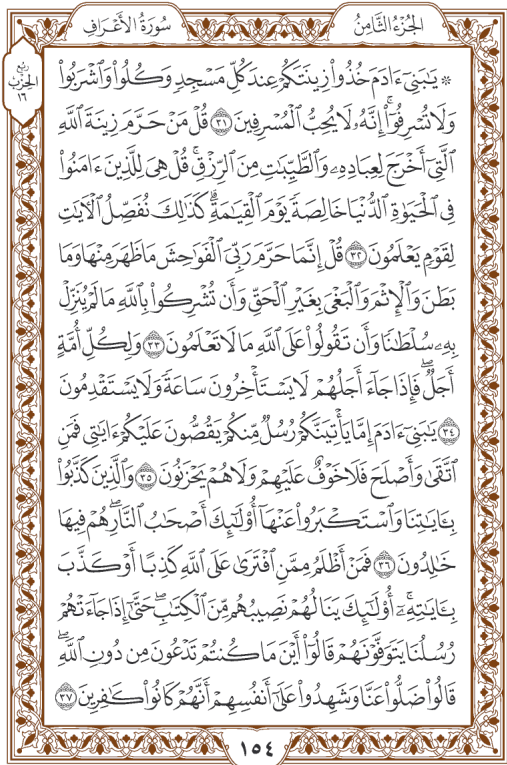 سُورَةُ الأَعْرَافِ
الجُزْءُ الثَّامِنُ
ربع
الحزب
١٦
۞ يَٰبَنِىٓ ءَادَمَ خُذُواْ زِينَتَكُمۡ عِندَ كُلِّ مَسۡجِدٖ وَكُلُواْ وَٱشۡرَبُواْ
وَلَا تُسۡرِفُوٓاْۚ إِنَّهُۥ لَا يُحِبُّ ٱلۡمُسۡرِفِينَ ٣١ قُلۡ مَنۡ حَرَّمَ زِينَةَ ٱللَّهِ
ٱلَّتِىٓ أَخۡرَجَ لِعِبَادِهِۦ وَٱلطَّيِّبَٰتِ مِنَ ٱلرِّزۡقِۚ قُلۡ هِىَ لِلَّذِينَ ءَامَنُواْ
فِى ٱلۡحَيَوٰةِ ٱلدُّنۡيَا خَالِصَةٗ يَوۡمَ ٱلۡقِيَٰمَةِۗ كَذَٰلِكَ نُفَصِّلُ ٱلۡأٓيَٰتِ
لِقَوۡمٖ يَعۡلَمُونَ ٣٢ قُلۡ إِنَّمَا حَرَّمَ رَبِّىَ ٱلۡفَوَٰحِشَ مَا ظَهَرَ مِنۡهَا وَمَا
بَطَنَ وَٱلۡإِثۡمَ وَٱلۡبَغۡىَ بِغَيۡرِ ٱلۡحَقِّ وَأَن تُشۡرِكُواْ بِٱللَّهِ مَا لَمۡ يُنَزِّلۡ
بِهِۦ سُلۡطَٰنٗا وَأَن تَقُولُواْ عَلَى ٱللَّهِ مَا لَا تَعۡلَمُونَ ٣٣ وَلِكُلِّ أُمَّةٍ
أَجَلٞۖ فَإِذَا جَآءَ أَجَلُهُمۡ لَا يَسۡتَأۡخِرُونَ سَاعَةٗ وَلَا يَسۡتَقۡدِمُونَ
٣٤ يَٰبَنِىٓ ءَادَمَ إِمَّا يَأۡتِيَنَّكُمۡ رُسُلٞ مِّنكُمۡ يَقُصُّونَ عَلَيۡكُمۡ ءَايَٰتِى فَمَنِ
ٱتَّقَىٰ وَأَصۡلَحَ فَلَا خَوۡفٌ عَلَيۡهِمۡ وَلَا هُمۡ يَحۡزَنُونَ ٣٥ وَٱلَّذِينَ كَذَّبُواْ
بِـَٔايَٰتِنَا وَٱسۡتَكۡبَرُواْ عَنۡهَآ أُوْلَٰٓئِكَ أَصۡحَٰبُ ٱلنَّارِۖ هُمۡ فِيهَا
خَٰلِدُونَ ٣٦ فَمَنۡ أَظۡلَمُ مِمَّنِ ٱفۡتَرَىٰ عَلَى ٱللَّهِ كَذِبًا أَوۡ كَذَّبَ
بِـَٔايَٰتِهِۦٓۚ أُوْلَٰٓئِكَ يَنَالُهُمۡ نَصِيبُهُم مِّنَ ٱلۡكِتَٰبِۖ حَتَّىٰٓ إِذَا جَآءَتۡهُمۡ
رُسُلُنَا يَتَوَفَّوۡنَهُمۡ قَالُوٓاْ أَيۡنَ مَا كُنتُمۡ تَدۡعُونَ مِن دُونِ ٱللَّهِۖ
قَالُواْ ضَلُّواْ عَنَّا وَشَهِدُواْ عَلَىٰٓ أَنفُسِهِمۡ أَنَّهُمۡ كَانُواْ كَٰفِرِينَ ٣٧
١٥٤